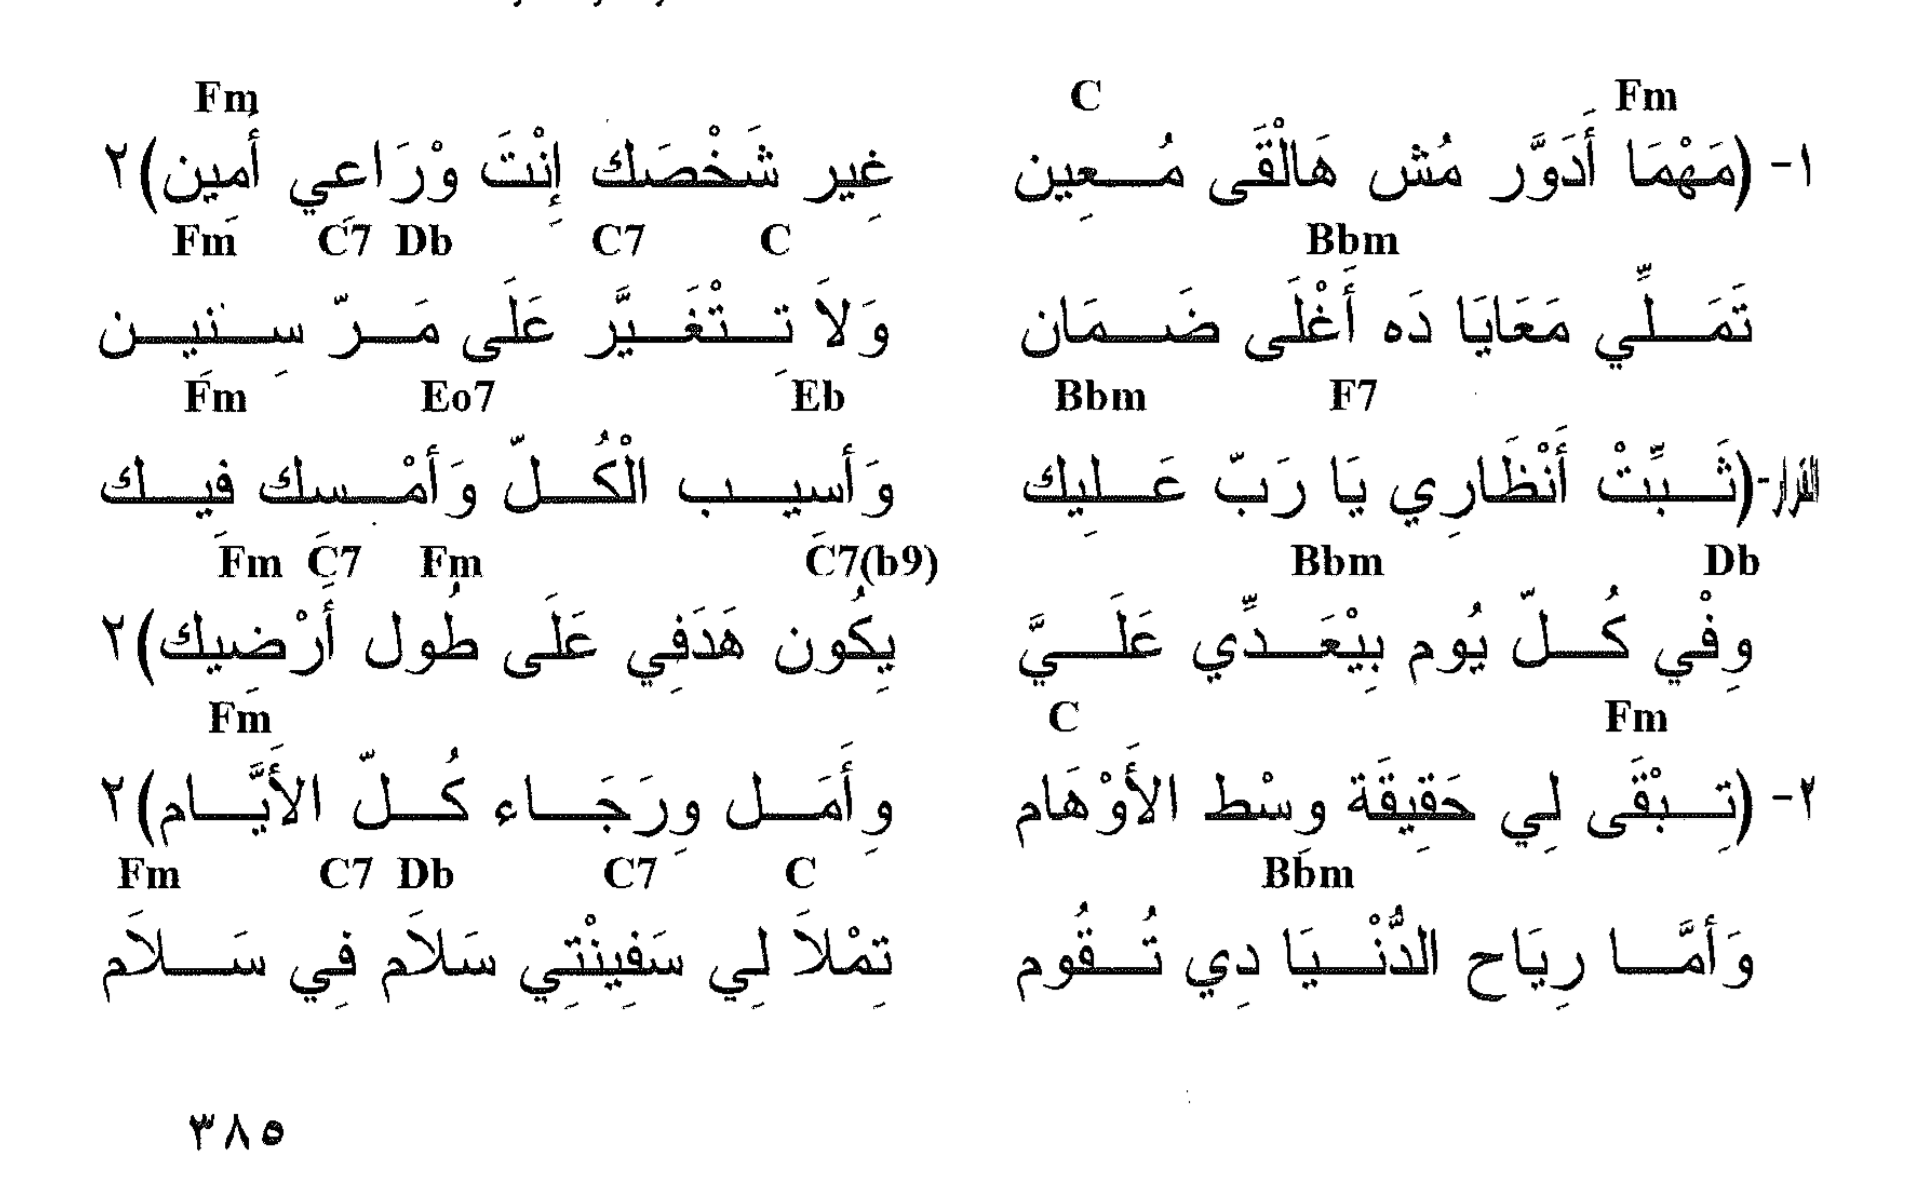 Fm C Fm
١- (مَهْمَا أَدَوَّر مُش هَالْقَى مُـعِين غِير شَخْصَك إِنْتَ وْرَاعي أَمين)٢
Bbm C C7 Db C7 Fm
تَمَـلِّي مَعَايَا دَه أَغْلَى ضَـمَان وَلاَ تِـتْغَـيَّر عَلَى مَـرّ سِـنيـن
F7 Bbm Eb Eo7 Fm
القرار-(ثَـبِّتْ أَنْظَارِي يَا رَبّ عَـلِيك وَأَسيـب الْكُـلّ وَأَمْـسك فيـك
Db Bbm C7(b9) Fm C7 Fm
وِفْي كُـلّ يُوم بِيْعَـدِّي عَلَـيَّ يِكُون هَدَفِي عَلَى طُول أَرْضيك)٢
Fm C Fm
٢- (تِـبْقَى لِي حَقِيقَة وِسْط الأَوْهَام وِأَمَـل ورَجَـاء كُـلّ الأَيَّـام)٢
Bbm C C7 Db C7 Fm
وَأَمَّـا رِيَاح الدُّنْـيَا دِي تُـقُوم تِمْلاَ لِي سَفِينْتِي سَلاَم فِي سَـلاَم
٣٨٥